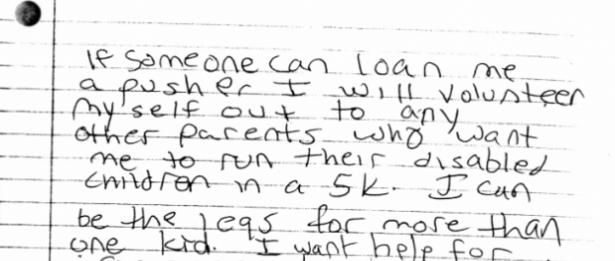 If someone can loan me
a pusher I will volunteer
my self out to any
other parents who want
me to run their disabled
children in a 5k. I can
be the legs for more than
one kid. I want help for